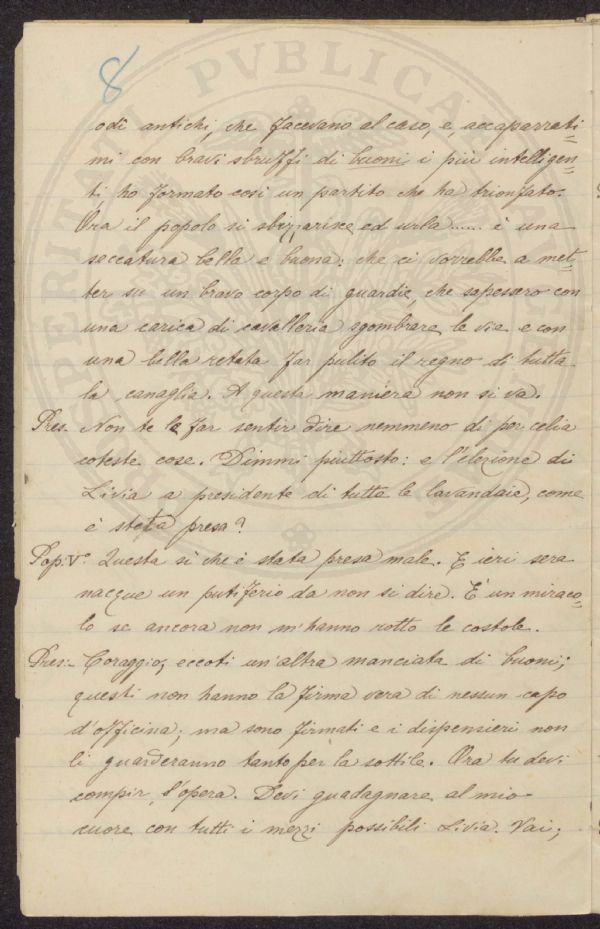 8
odî antichi, che facevano al caso, e, accaparrati=
mi con bravi sbruffi di buoni i più intelligen=
ti, ho formato così un partito che ha trionfato.
Ora il popolo si sbizzarisce ed urla...... è una
seccatura bella e buona: che ci vorrebbe a met=
ter su un bravo corpo di guardie, che sapessero con
una carica di cavalleria sgombrare le vie e con
una bella retata far pulito il regno di tutta
la canaglia. A questa maniera non si va.
Pres. Non te le far sentir dire nemmeno di per celia
coteste cose. Dimmi piuttosto: e l'elezione di
Livia a presidente di tutte le lavandaie, come
è stata presa?
Pop: Vo. Questa sì che è stata presa male. E ieri sera
nacque un putiferio da non si dire. E' un miraco=
lo se ancora non m'hanno rotto le costole.
Pres:- Coraggio; eccoti un'altra manciata di buoni;
questi non hanno la firma vera di nessun capo
d'officina; ma sono firmati e i dispensieri non
li guarderanno tanto per la sottile. Ora tu devi
compir l'opera. Devi guadagnare al mio
cuore con tutti i mezzi possibili Livia. Vai;
PVBLICA